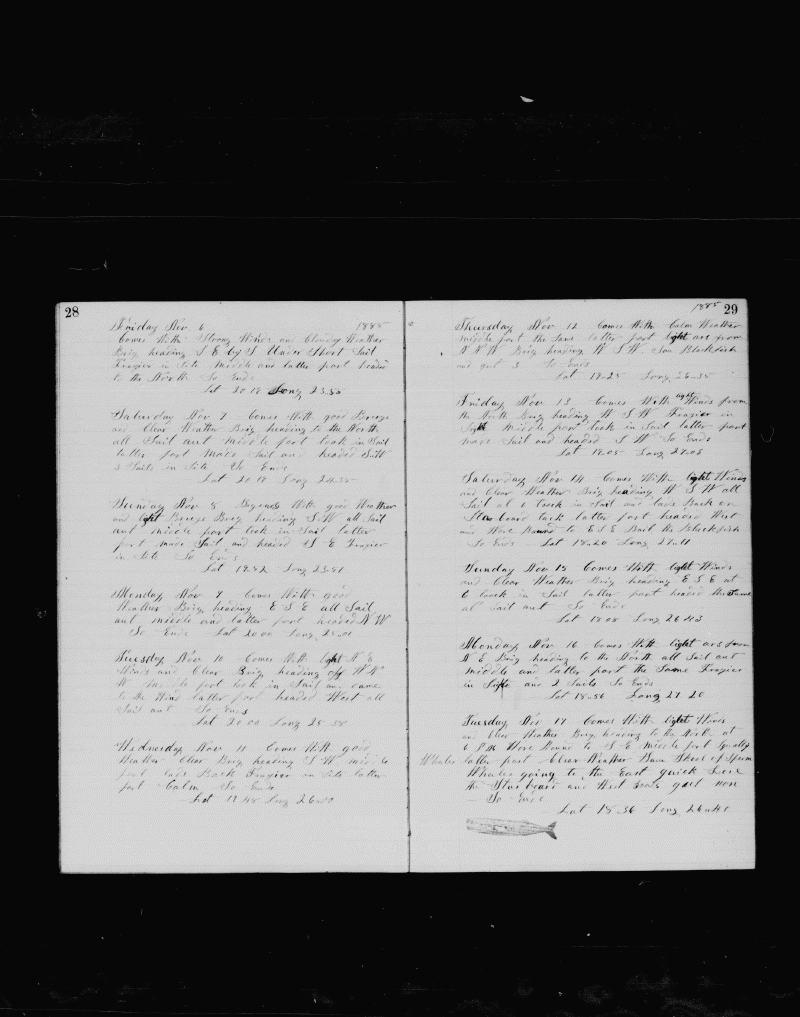 28
Friday Nov 6 1885
Comes With Strong Winds and Cloudy Weather
Brig heading S E by S Under Short Sail
Frazier in Site Middle and latter part headed
to the North So Ends
Lat 20.18 Long 23.50
Saturday Nov 7 Comes With good Breeze
and Clear Weather Brig heading to the North
all Sail aut middle part took in Sail
latter part Made Sail and headed S W
3 Sails in Site So Ends
Lat 20.18 Long 24.35
Sunday Nov 8 With good Weather
and light Breeze Brig heading S W all Sail
aut middle part took in Sail latter
part made Sail and headed S E Frazier
in Site So Ends
Lat 19.42 Long 23.51
Monday Nov 9 Comes With good
Weather Brig heading E S E all Sail
aut middle and latter part headed N W
So Ends Lat 20.00 Long 25.01
Tuesday Nov 10 Comes With light N E
Winds and Clear Brig heading W N
W middle part took in Sail and came
to the Wind latter part headed West all
Sail aut So Ends
Lat 20.00 Long 25.38
Wednesday Nov 11 Comes With good
Weather Clear Brig heading S W middle
part laid Back Frazier in Site latter
part Calm So Ends
Lat 19.48 Long 26.00
1885 29
Thursday Nov 12 Comes With Calm Weather
middle part the Same latter part light ars from
N N W Brig heading W S W Saw Blackfish
and gut 3 So Ends
Lat 19.25 Long 26.35
Friday Nov 13 Comes With light Winds from
the North Brig heading W S W Frazier in
Site middle part took in Sail latter part
made Sail and headed S W So Ends
Lat 19.05 Long 27.03
Saturday Nov 14 Comes With light Winds
and Clear Weather Brig heading W S W all
Sail at 6 took in Sail and laid Back on
Starboard tack latter part headed West
and Wore Round to E S E Boil the Blackfish
So Ends Lat 18.20 Long 27.11
Sunday Nov 15 Comes With light Winds
and Clear Weather Brig heading E S E at
6 took in Sail latter part headed the Same
al Sail aut So Ends
Lat 18.08 Long 26.43
Monday Nov 16 Comes With light ars from
N E Brig heading to the North all Sail aut
middle and latter part the Same Frazier
in Site and 2 Sails So Ends
Lat 18.56 Long 27.20
Tuesday Nov 17 Comes With light Winds
and Clear Weather Brig heading to the North at
6 P M Wore Round to S E middle part Squally
Whales latter part Clear Weather Saw Skool of Sperm
Whales going to the East quick Lore
the Starboard and West Boats gut non
So Ends
Lat 18.36 Long 26.40